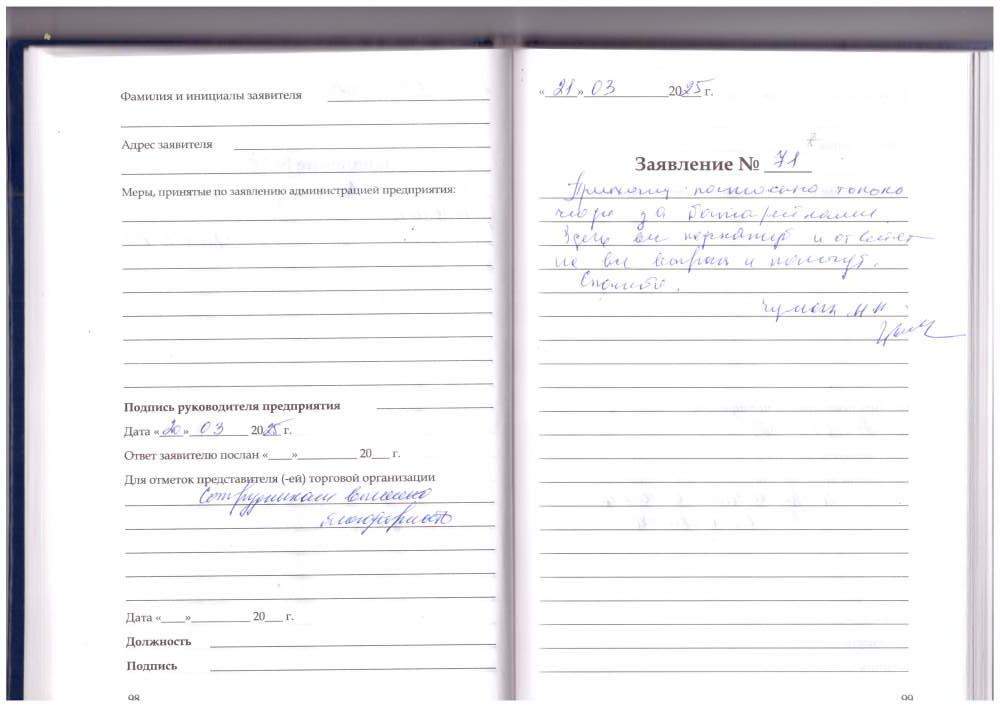 Фамилия и инициалы заявителя
Адрес заявителя
Меры, принятые по заявлению администрацией предприятия:
Подпись руководителя предприятия
Дата «20» 03 2025 г.
Ответ заявителю послан «___» ______ 20__ г.
Для отметок представителя (-ей) торговой организации
Сотрудникам вынесена
благодарность
Дата «___» ______ 20__ г.
Должность
Подпись
98
«21» 03 2025 г.
Заявление № 71
Прихожу постоянно только
сюда за батарейками.
Здесь вы и ответят
на вы вопрош и помогут.
Спасибо.
99